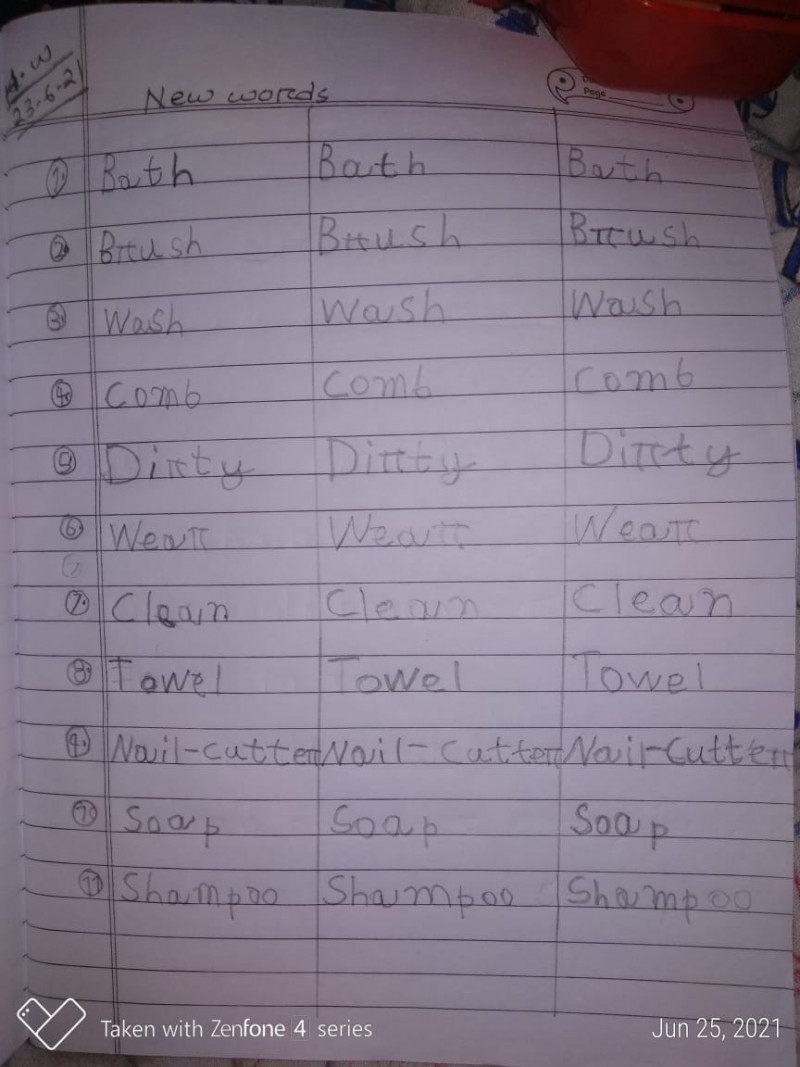 A.W
23.6.21
New words
Page
1. Bath Bath Bath
2. Brush Brush Brush
3. Wash Wash Wash
4. Comb Comb Comb
5. Dirty Dirty Dirty
6. Wear Wear Wear
7. Clean Clean Clean
8. Towel Towel Towel
9. Nail-cutter Nail-Cutter Nail-Cutter
10 Soap Soap Soap
11 Shampoo Shampoo Shampoo
Taken with Zenfone 4 series Jun 25, 2021